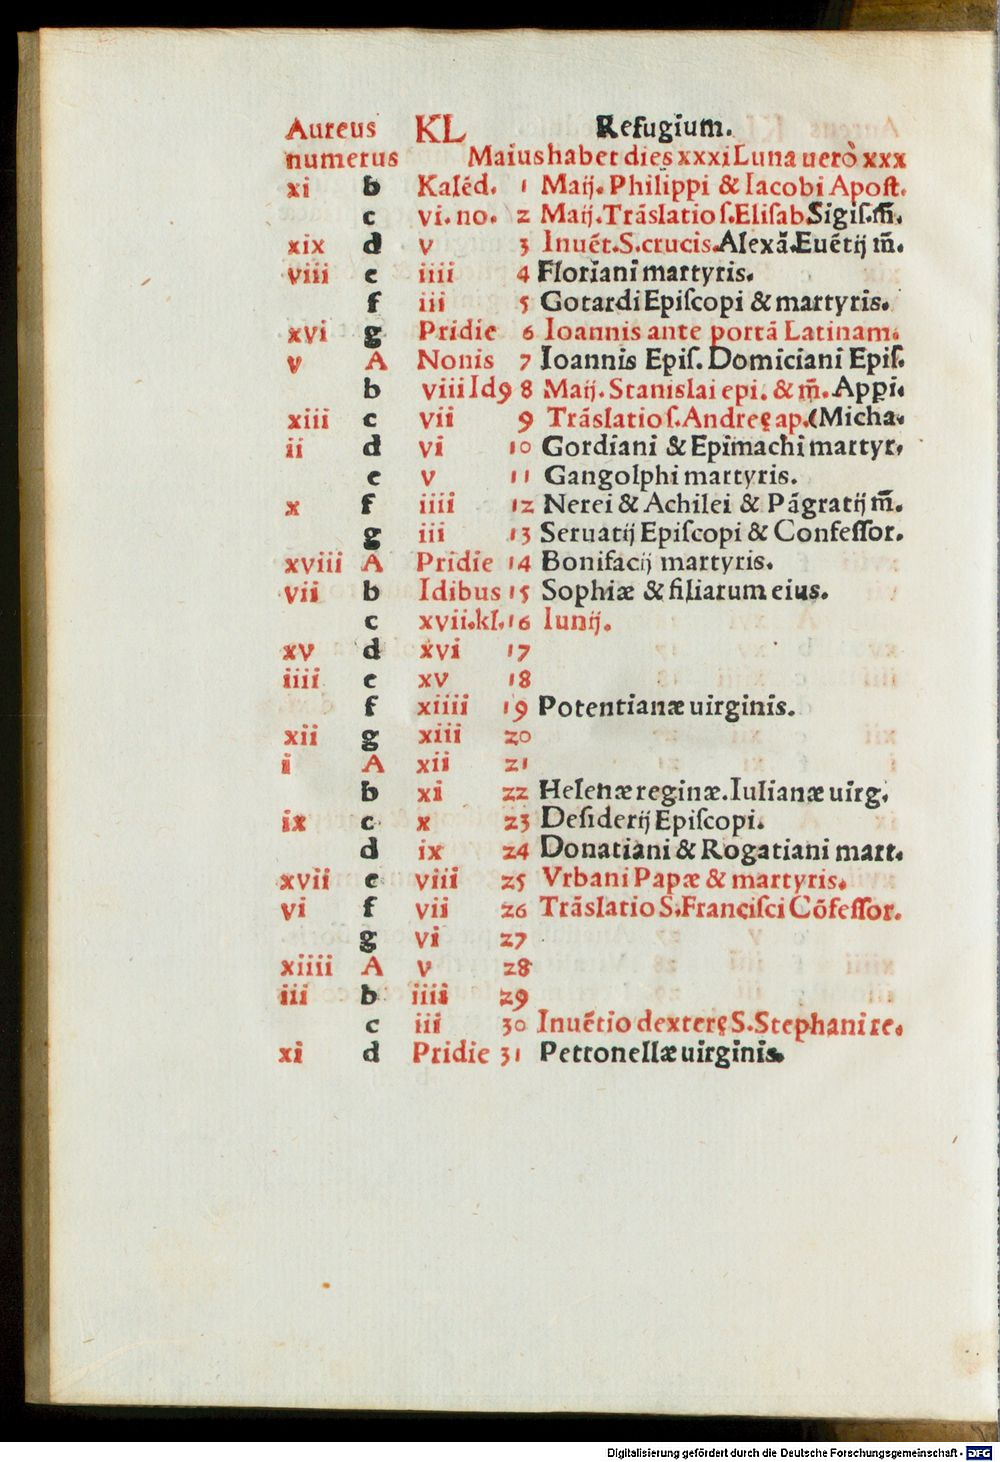 Aureus KL Refugium.
numerus Maius habet dies xxxi Luna uerò xxx
xi b Kalẽd. 1 Maij. Philippi & Iacobi Apost.
c vi. no. 2 Maij. Trãslatio s. Elisab Sigis. m̃.
xix d v 3 Inuẽt. S. crucis. Alexã. Euẽtij m̃.
viii e iiii 4 Floriani martyris.
f iii 5 Gotardi Episcopi & martyris.
xvi g Pridie 6 Ioannis ante portã Latinam.
v A Nonis 7 Ioannis Epis. Domiciani Epis.
b viii Idꝯ 8 Maij. Stanislai epi. & m̃. Appi.
xiii c vii 9 Trãslatio s. Andreę ap. (Micha.
ii d vi 10 Gordiani & Epimachi martyr.
e v 11 Gangolphi martyris.
x f iiii 12 Nerei & Achilei & Pãgratij m̃.
g iii 13 Seruatij Episcopi & Confessor.
xviii A Pridie 14 Bonifacij martyris.
vii b Idibus 15 Sophiæ & filiarum eius.
c xvii. kl. 16 Iunij.
xv d xvi 17
iiii e xv 18
f xiiii 19 Potentianæ uirginis.
xii g xiii 20
i A xii 21
b xi 22 Helenæ reginæ. Iulianæ uirg.
ix c x 23 Desiderij Episcopi.
d ix 24 Donatiani & Rogatiani mart.
xvii e viii 25 Vrbani Papæ & martyris.
vi f vii 26 Trãslatio S. Francisci Cõfessor.
g vi 27
xiiii A v 28
iii b iiii 29
c iii 30 Inuẽtio dexterę S. Stephani re.
xi d Pridie 31 Petronellæ uirginis.
Digitalisierung gefördert durch die Deutsche Forschungsgemeinschaft - DFG